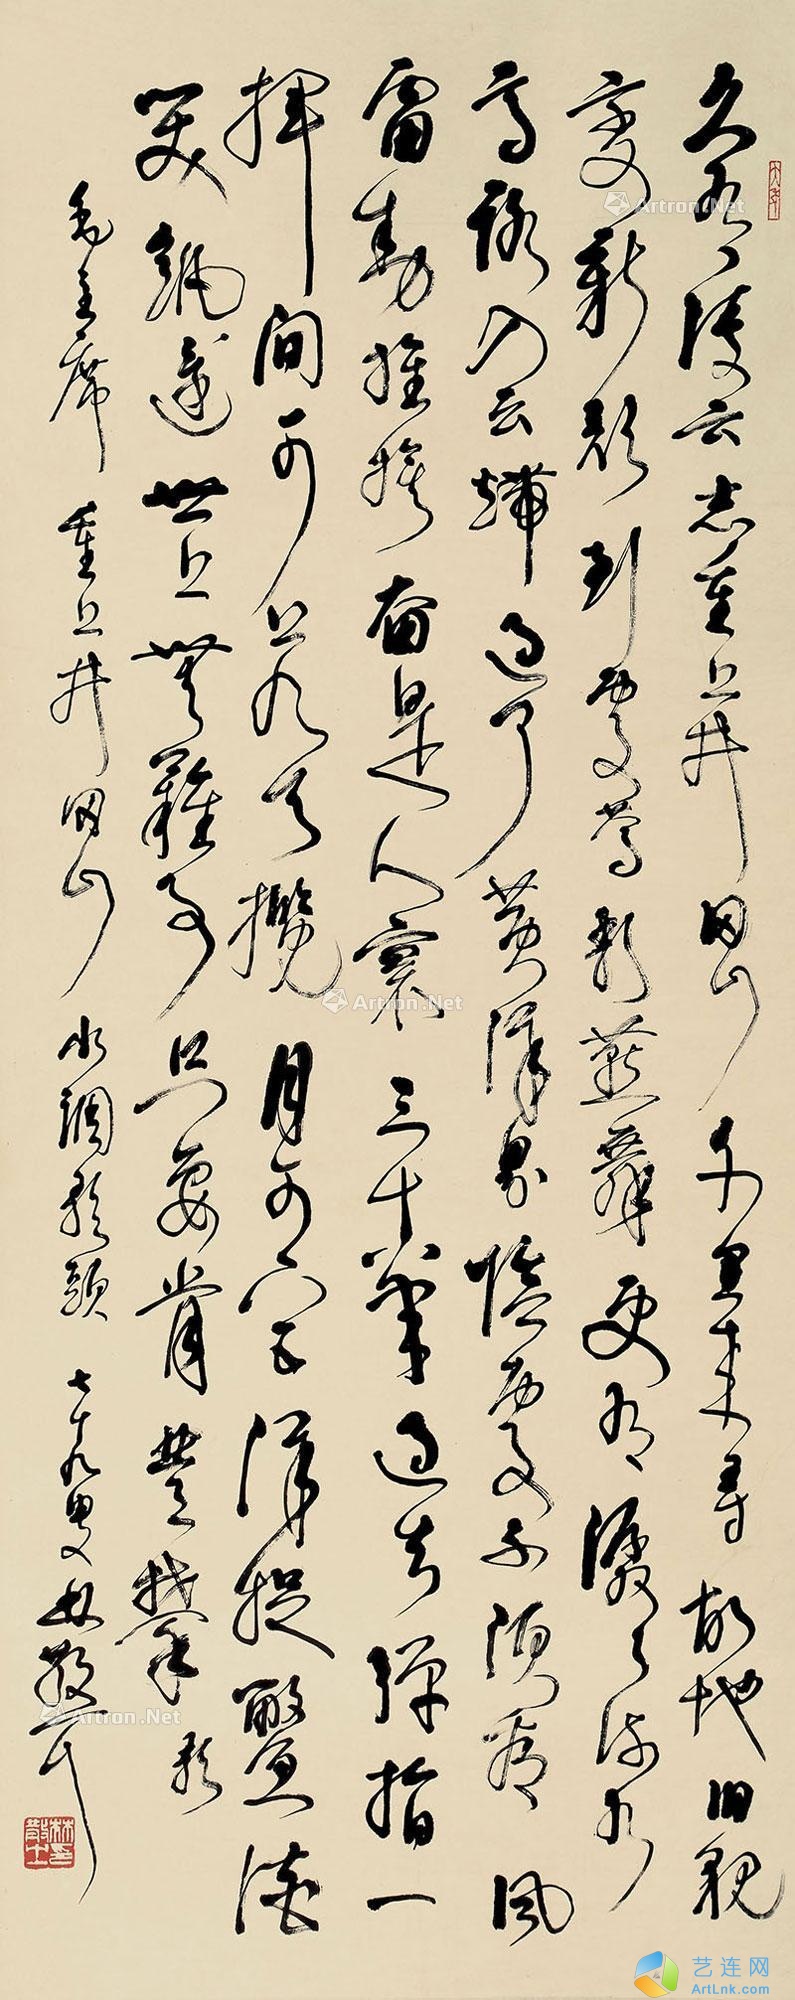 久有凌云志重上井冈山千里来寻故地旧貌
变新颜到處莺歌燕舞更有潺潺流水
高路入云端过了黄洋界險處不须看风
雷动旌旗奋是人寰三十八年过去弹指一
挥间可上九天攬月可下五洋捉鳖谈
笑凱还世上無難事只要肯登攀 歌
毛主席 重上井冈山 水調歌頭 七十九叟林散耳
Artron.Net
Artron.Net
Artron.Net
Artron.Net
Artron.Net
艺连网
ArtLnk.com